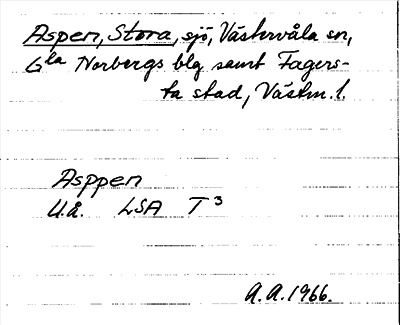 Aspen, Stora, sjö, Västervåla sn,
Gla Norbergs blg samt Fagers-
ta stad, Västm. l.
Asppen
U.å. LSA T3
A.A.1966.